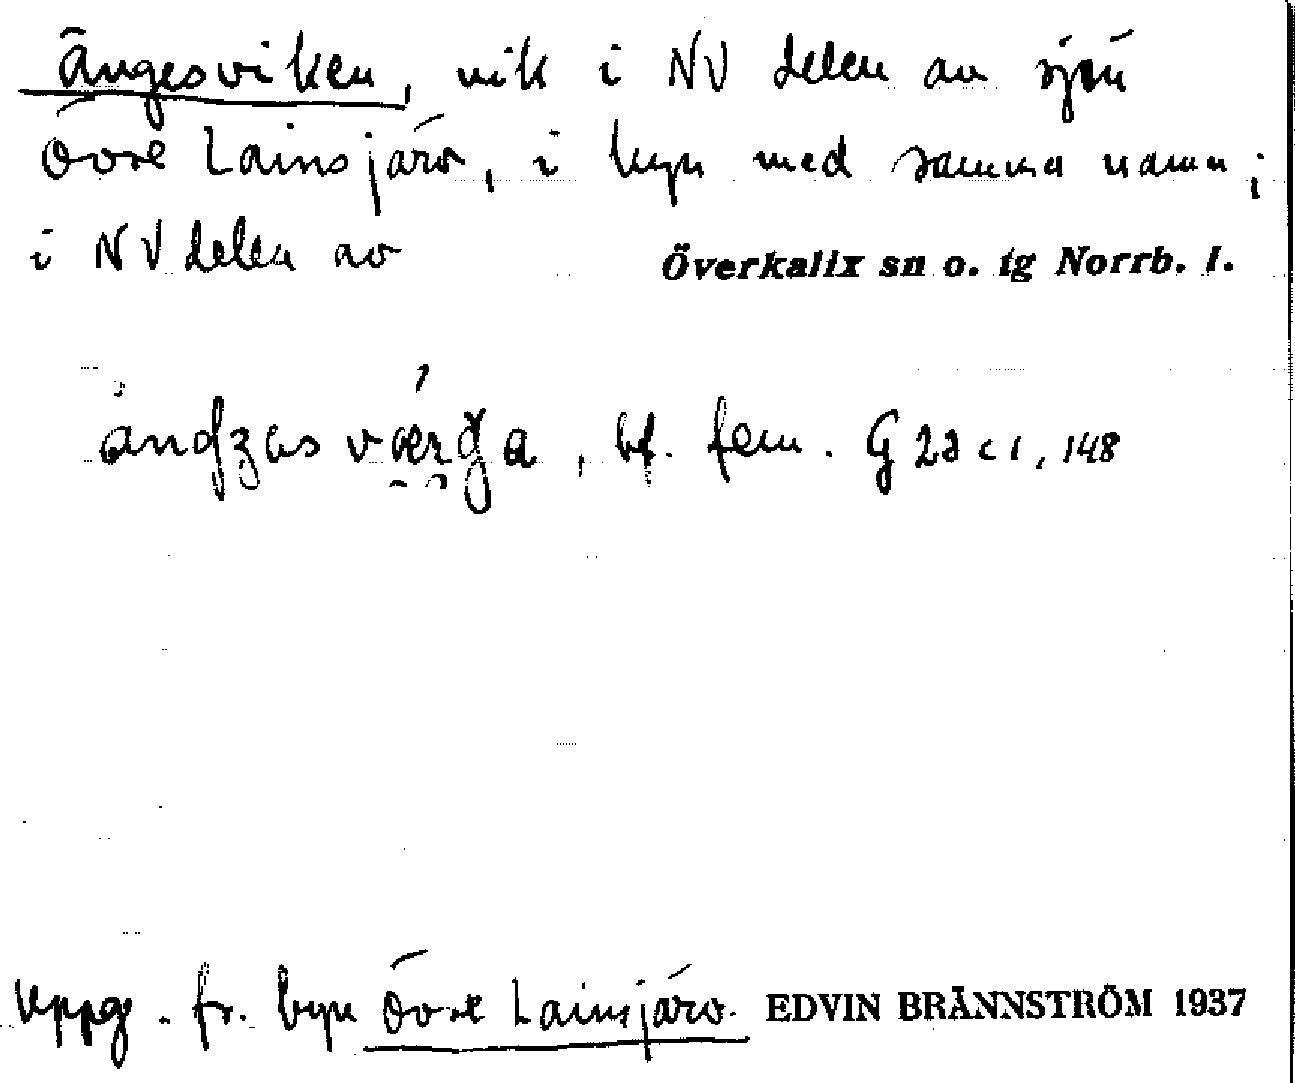 Ängesviken, vik i NV delen av sjön
Övre Lainsjärv, i byn med samma namn;
i NV delen av Överkalix sn o. tg Norrb. l.
bf. fem. G 22 c 1, 148
Uppg. fr. byn Övre Lainsjärv. EDVIN BRÄNNSTRÖM 1937